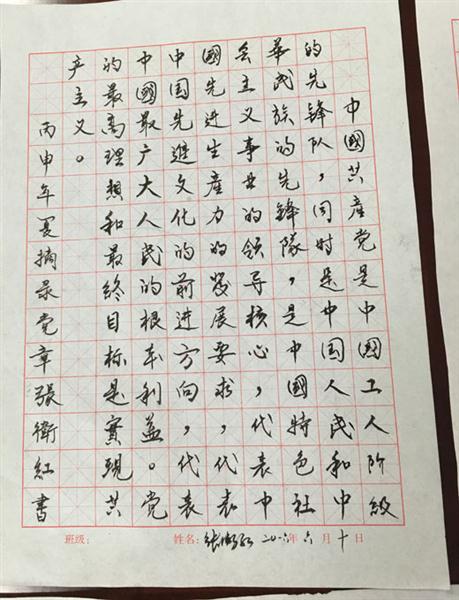 中國共産党是中国工人阶級
的先锋队，同时是中国人民和中
華民族的先鋒隊，是中國特色社
会主义事业的领导核心，代表中
國先进生產力的发展要求，代表
中国先進文化的前进方向，代表
中國最广大人民的根本利益。党
的最高理想和最终目标是實現共
产主义。
丙申年夏摘录党章張衛紅書
班级： 姓名：张卫红 二〇一六年六月十日